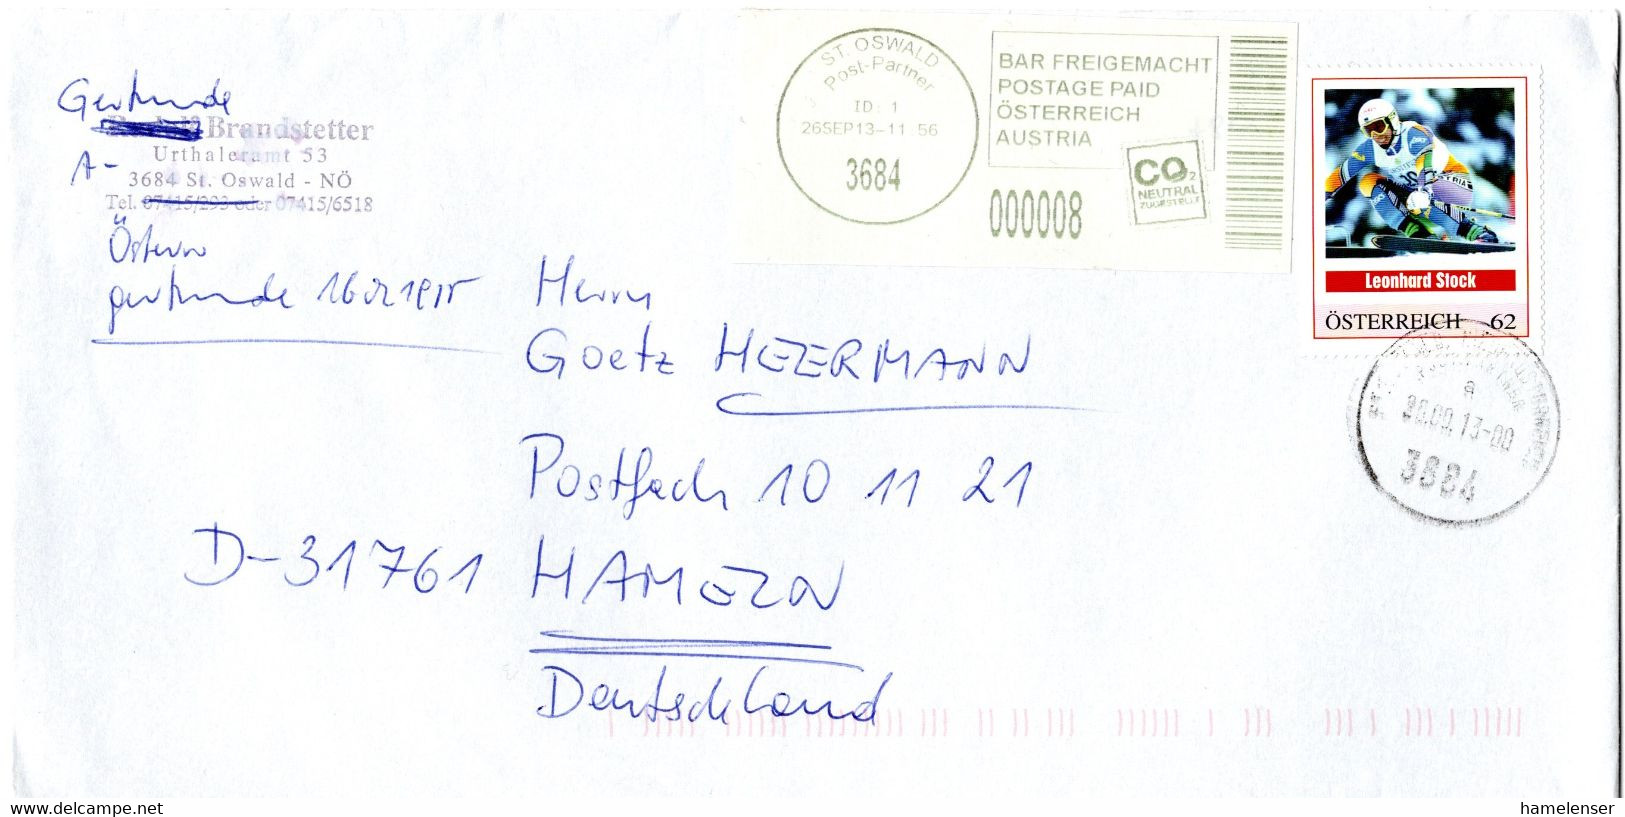 Gertrude
Brandstetter
A-
Urthaleramt 53
3684 St. Oswald - NÖ
Tel. 07415/293 oder 07415/6518
Österr
gertrude
ST. OSWALD
Post-Partner
ID: 1
26SEP13-11 56
3684
BAR FREIGEMACHT
POSTAGE PAID
ÖSTERREICH
AUSTRIA
CO2
NEUTRAL
ZUGESTELLT
000008
Leonhard Stock
ÖSTERREICH 62
a
3684
Herrn
Goetz HEERMANN
Postfach 10 11 21
D-31761 HAMELN
Deutschland
delcampe.net
hamelenser